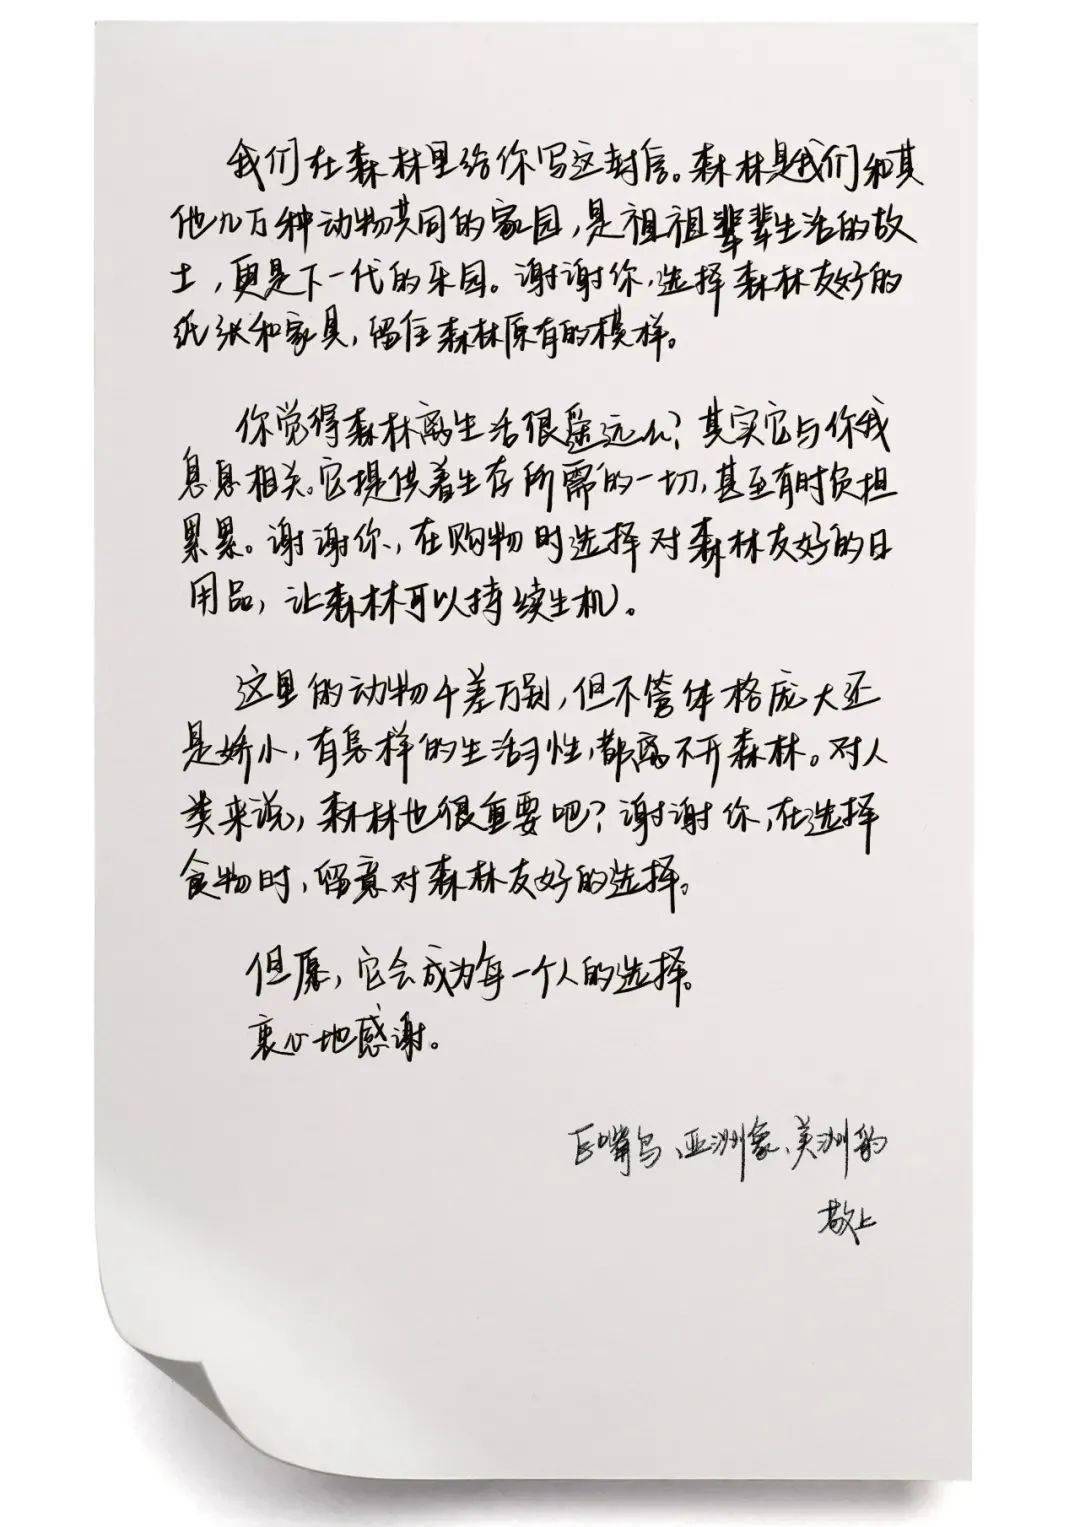 我们在森林里给你写这封信。森林是我们和其
他几万种动物共同的家园，是祖祖辈辈生活的故
土，更是下一代的乐园。谢谢你，选择森林友好的
纸张和家具，留住森林原有的模样。
你觉得森林离生活很遥远么？其实它与你我
息息相关。它提供着生存所需的一切，甚至有时负担
累累。谢谢你，在购物时选择对森林友好的日
用品，让森林可以持续生机。
这里的动物千差万别，但不管体格庞大还
是娇小，有怎样的生活习性，都离不开森林。对人
类来说，森林也很重要吧？谢谢你，在选择
食物时，留意对森林友好的选择。
但愿，它会成为每一个人的选择。
衷心地感谢。
巨嘴鸟、亚洲象、美洲豹
敬上